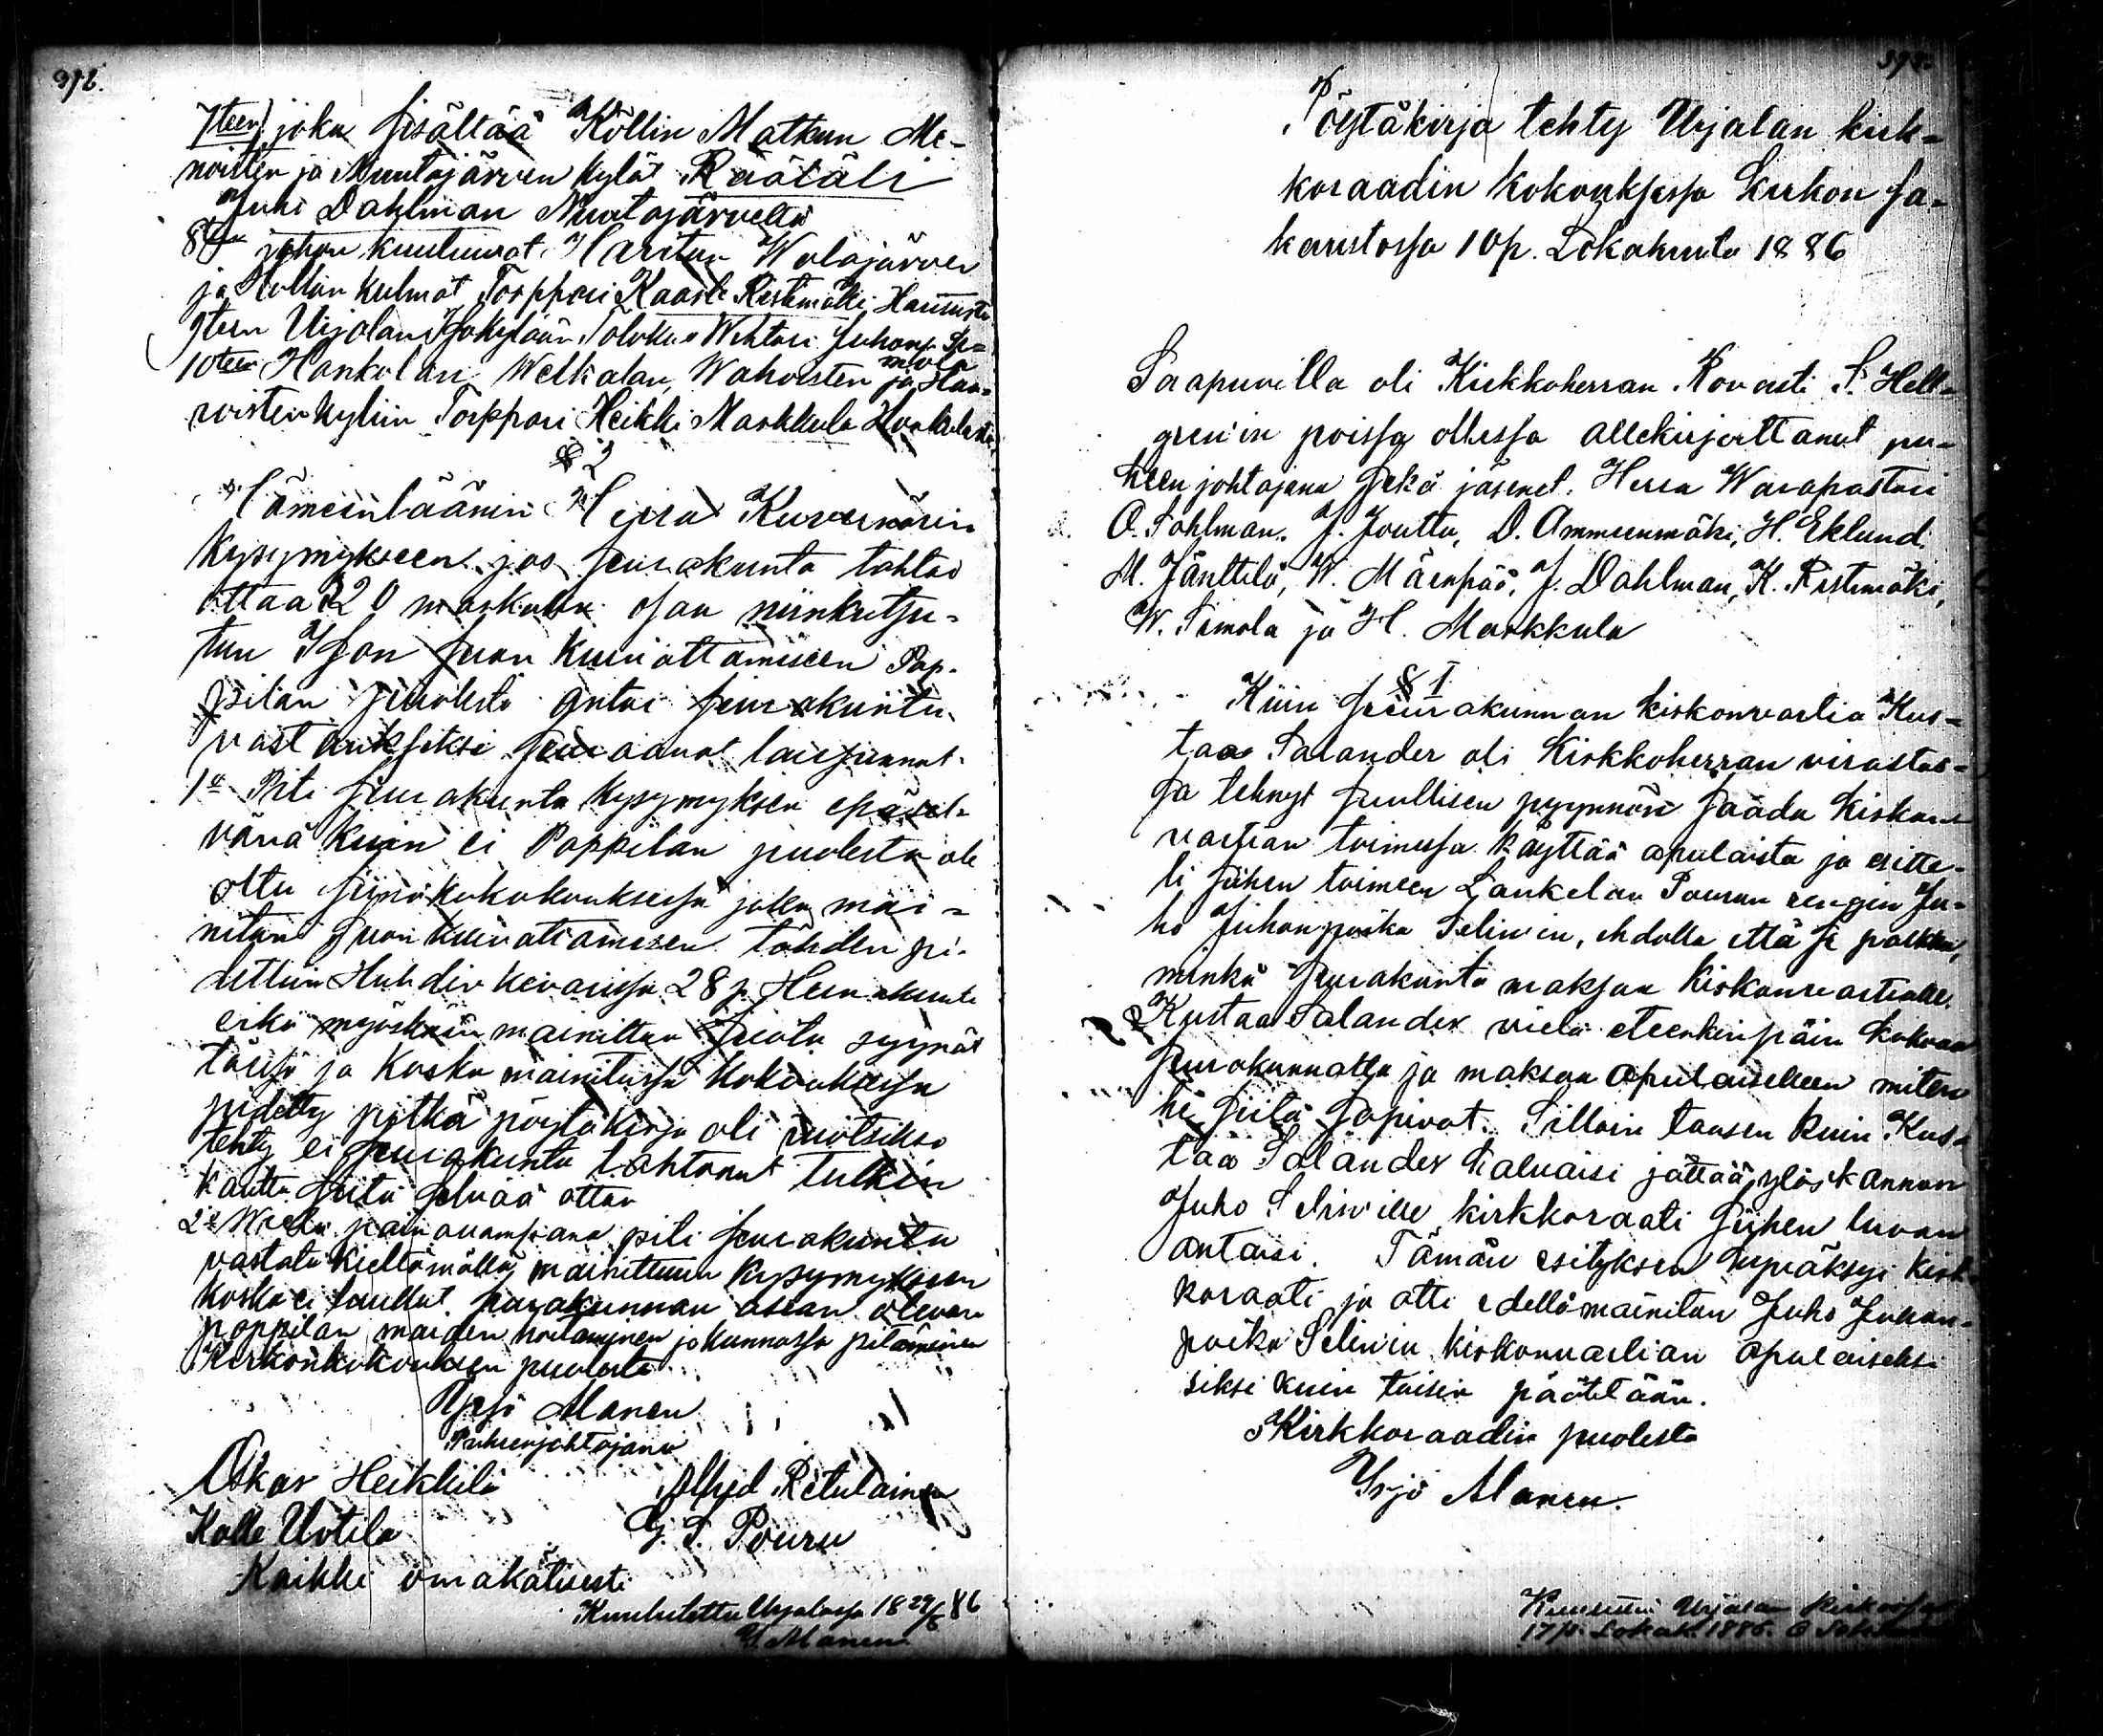 392.
7teen joka sisältää Köllin Matkun Me-
noisten ja Nuutajärven kylät Räätäli
Juha Dahlman Nuutajärveltä
8teen johon kuuluvat Haritun Walajärven
ja Kollan kulmat Torppari Kaarle Ristimäki Harittusta
9teen Urjalan Isokylään Talokas Wihtori Juhonp. Si-
mola
10teen Hankolan Welkalan, Wahoisten ja Haa-
roisten kyliin Torppari Heikki Markkula Honkolasta
§ 2
Hämeenläänin Herra Kuvernörin
kysymykseen jos seurakunta tahtoo
ottaa 320 markan osan niinkutsu-
tun Ison suon kuivattamiseen Pap-
pilan puolesta antoi seurakunta
vastaukseksi seuraavat lausunnot.
1o Piti seurakunta kysymyksen epäsel-
vänä kuin ei Pappilan puolesta ole
oltu siinä kokouksessa joka mai-
nitun suon kuivattamisen tähden pi-
dettiin Huhdin kievarissa 28 p. Heinäkuuta
eikä myöskään mainittua suota syynät
täissä ja koska mainitussa kokouksessa
pidetty pitkä pöytäkirja oli ruotsiksi
tehty ei seurakunta tahtonut tulkin
kautta siitä selvää ottaa
2o Wielä painavampana piti seurakunta
vastata kieltämällä mainittuun kysymykseen
koska ei luullut seurakunnan asian olevan
pappilan maiden hoitaminen ja kunnossa pitäminen
Kirkonkokouksen puolesta
Yrjö Alanen
Puheenjohtajana
Oskar Heikkilä Alfred Retulainen
Kalle Uotila G. S. Pouru
Kaikki omakätisesti
Kuulutettu Urjalassa 18 29/6 86
Y. Alanen
393.
Pöytäkirja tehty Urjalan kirk-
koraadin kokouksessa Kirkon sa-
karistossa 10 p. Lokakuuta 1886
Saapuvilla oli Kirkkoherran Rovasti S. Hell-
gren'in poissa ollessa allekirjoittanut pu-
heenjohtajana sekä jäsenet. Herra Warapastori
O. Sohlman. J. Joutta, D. Ammeenmäki, H. Eklund.
M. Jänttilä, W. Mäenpää, J. Dahlman, K. Ristimäki,
W. Simola ja H. Markkula
§ I
Kuin seurakunnan kirkonvartia Kus-
taa Salander oli Kirkkoherran virastos-
sa tehnyt suullisen pyynnön saada kirkon-
vartian toimessa käyttää apulaista ja esitte-
li siihen toimeen Laukelan Pourun rengin Ju-
ho Juhanpoika Selin'in, ehdolla että se palkka,
minkä seurakunta maksaa kirkonvartialle
Kustaa Salander vielä eteenkinpäin kokoaa
seurakunnalta ja maksaa apulaiselleen miten
he siitä sopivat. Silloin taasen kuin Kus-
taa Salander haluaisi jättää ylöskannon
Juho Selin'ille kirkkoraati siihen luvan
antaisi. Tämän esityksen hyväksyi kirk-
koraati ja otti edellämainitun Juho Juhan-
poika Selin'in kirkonvartian apulaiseksi
siksi kuin toisin päätetään.
Kirkkoraadin puolesta
Yrjö Alanen.
Urjalan kirkossa
17 p. Lokak. 1886. O Sohlman